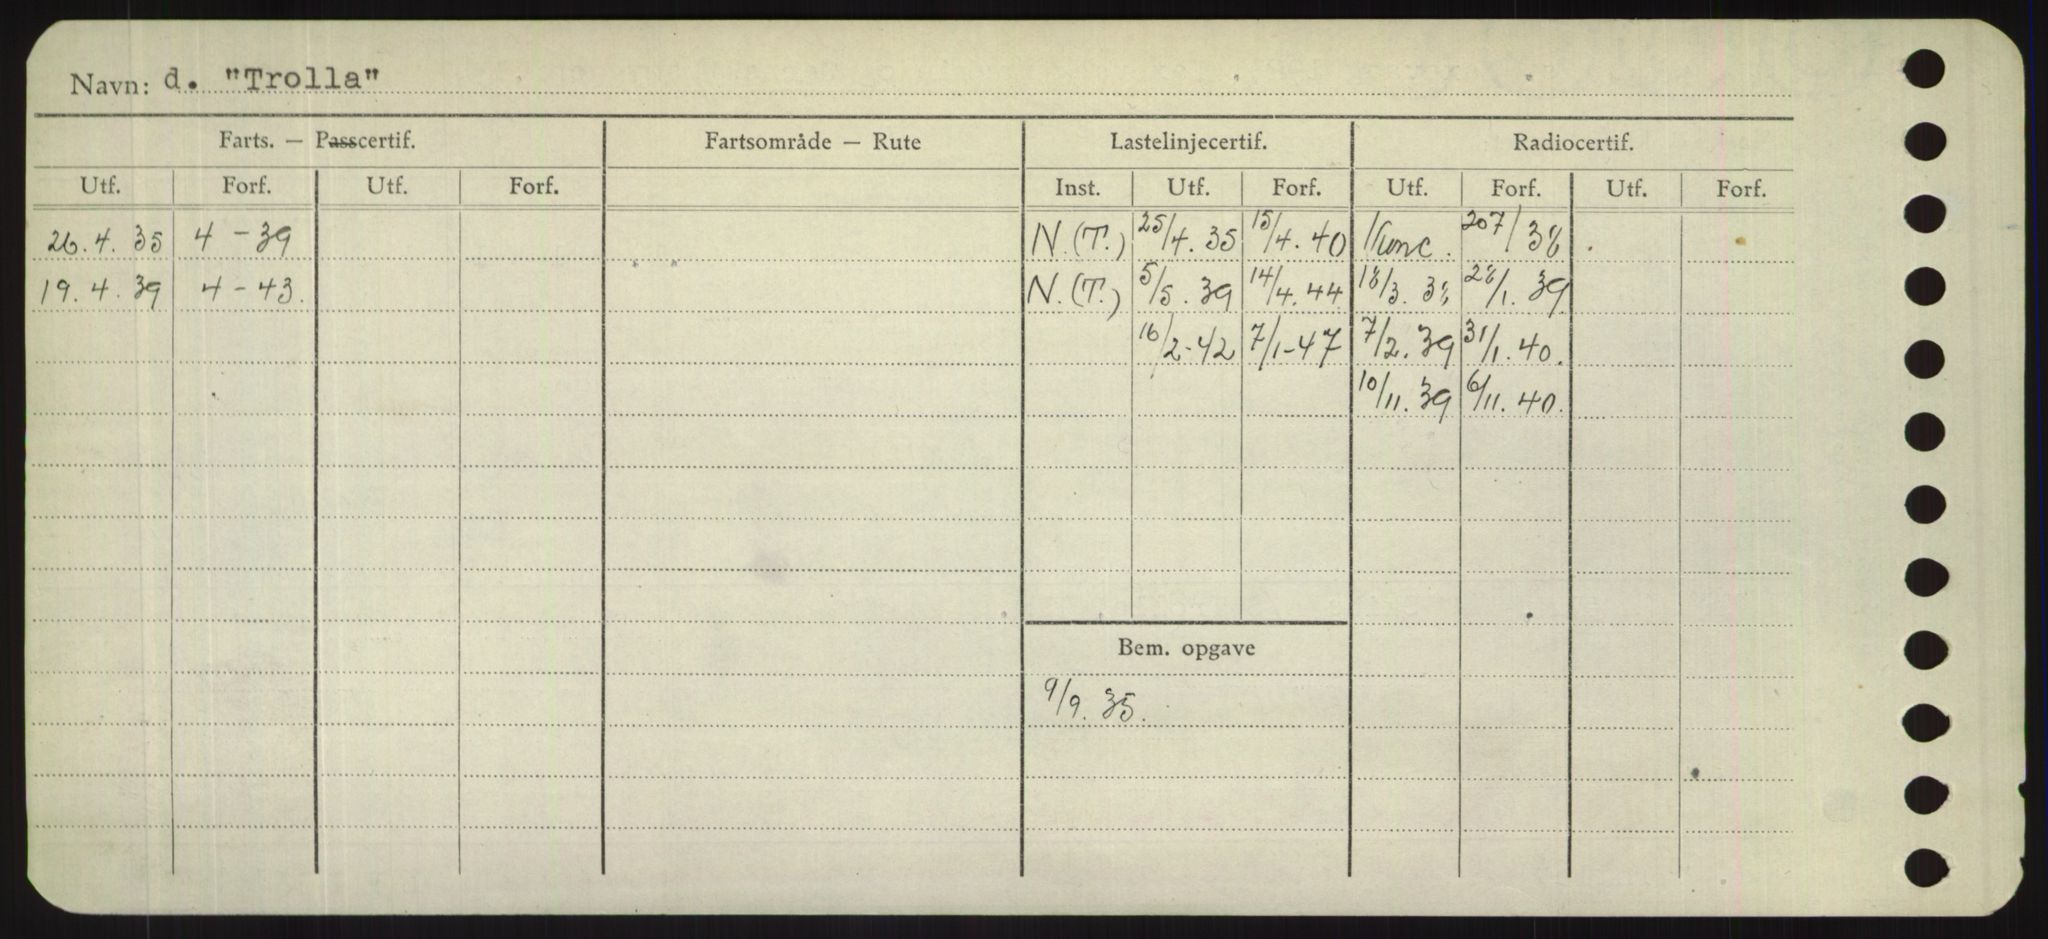 Navn: d. "Trolla"
Farts. — Passcertif. Fartsområde — Rute Lastelinjecertif. Radiocertif.
Utf. Forf. Utf. Forf. Inst. Utf. Forf. Utf. Forf. Utf. Forf.
26.4.35 4-39 N.(T.) 25/4.35 15/4.40 207/38
19.4.39 4-43. N.(T.) 5/5.39 14/4.44 18/3.38 28/1.39
16/2-42 7/1-47 7/2.39 31/1.40.
10/11.39 6/11.40.
Bem. opgave
9/9.35.